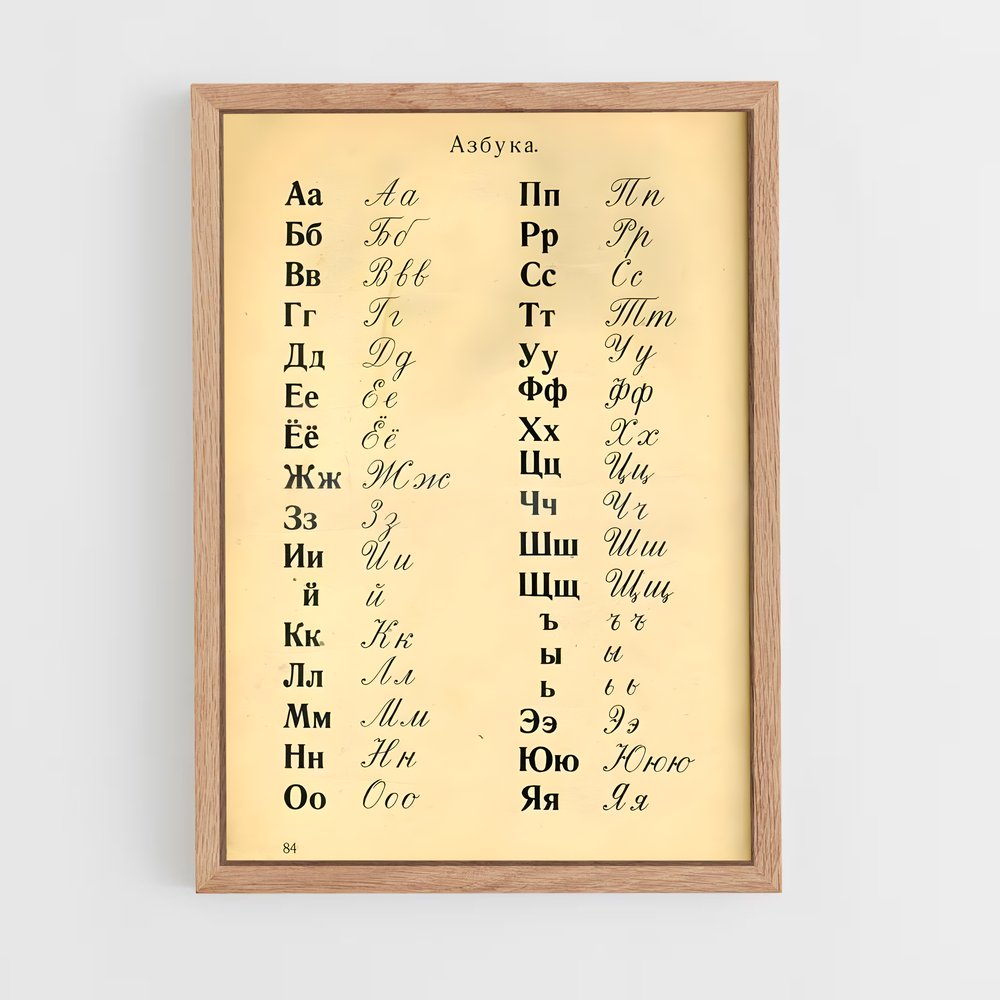 Азбука.
Аа Аа
Бб Бб
Вв Ввв
Гг Гг
Дд Дд
Ее Ее
Ёё Ёё
Жж Жж
Зз Зз
Ии Ии
й й
Кк Кк
Лл Лл
Мм Мм
Нн Нн
Оо Ооо
84
Пп Пп
Рр Рр
Сс Сс
Тт Тт
Уу Уу
Фф Фф
Хх Хх
Цц Цц
Чч Чч
Шш Шш
Щщ Щщ
ъ ъ ъ
ы ы
ь ь ь
Ээ Ээ
ЮюЮюю
Яя Яя